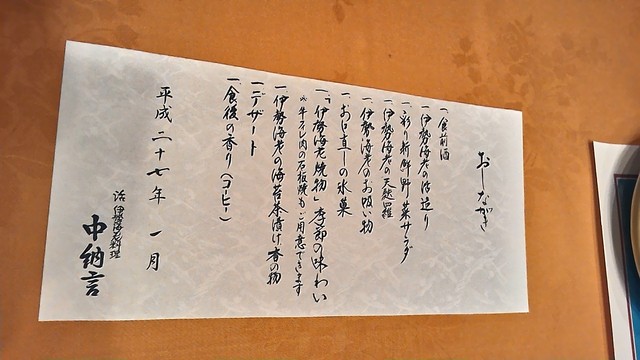 おしながき
一、食前酒
一、伊勢海老の活造り
一、彩り新鮮野菜サラダ
一、伊勢海老の天麩羅
一、伊勢海老のお吸い物
一、お口直しの氷菓
一、「伊勢海老焼物」季節の味わい
※牛フィレ肉の石板焼もご用意できます
一、伊勢海老の海苔茶漬け、香の物
一、デザート
一、食後の香り(コーヒー)
平成二十七年 一月
活伊勢海老料理
中納言